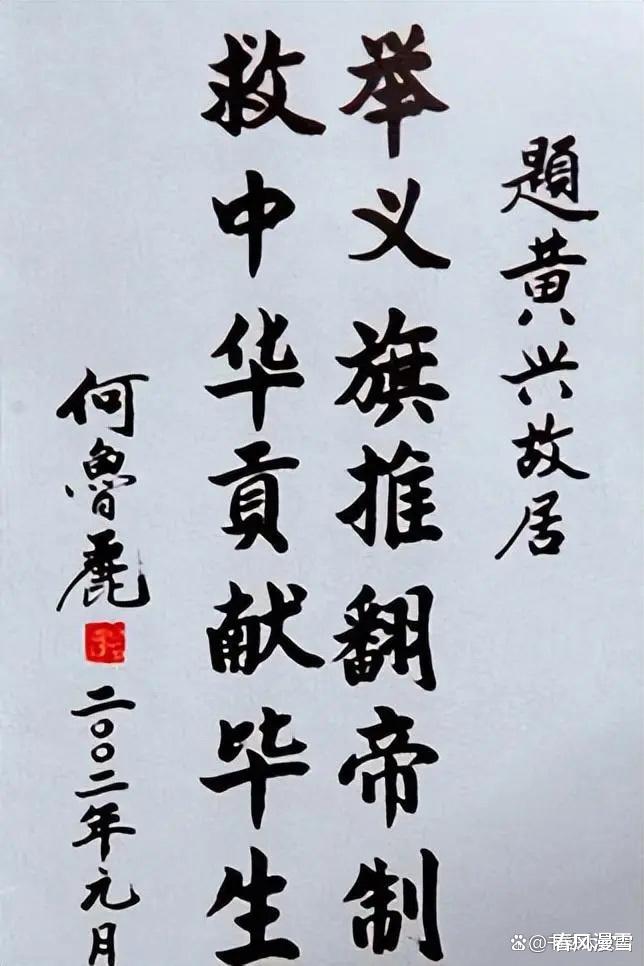 题黄兴故居
举义旗推翻帝制
救中华贡献毕生
何魯麗
二〇〇二年元月
春风漫雪